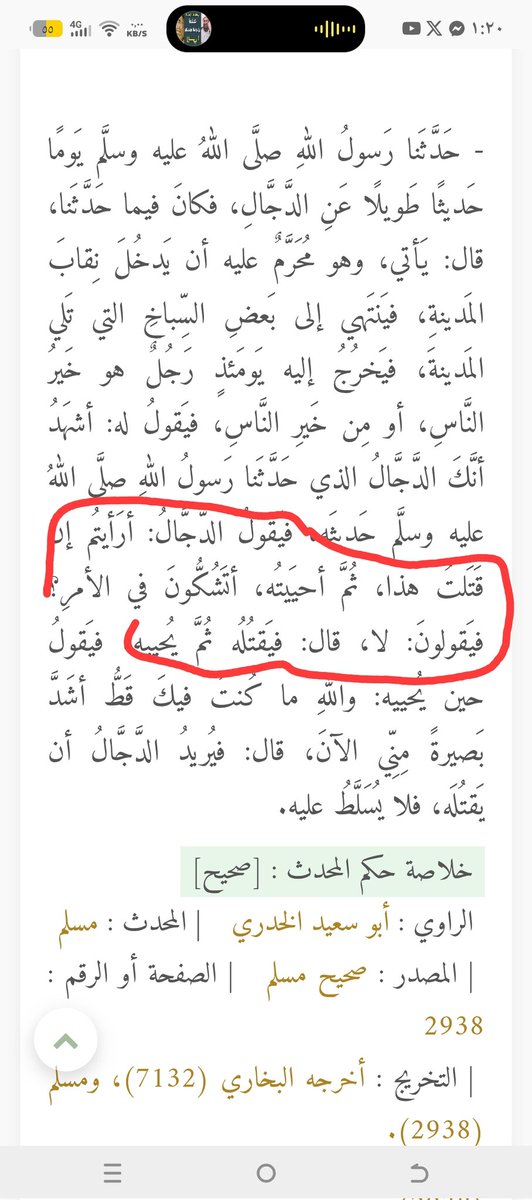 ٥٥ 4G KB/S ١:٢٠
- حَدَّثَنا رَسولُ اللهِ صلَّى اللهُ عليه وسلَّم يَومًا
حَديثًا طَويلًا عَنِ الدَّجَّالِ، فكانَ فيما حَدَّثَنا،
قال: يَأتي، وهو مُحَرَّمٌ عليه أن يَدخُلَ نِقابَ
المَدينةِ، فيَنتَهي إلى بَعضِ السِّباخِ التي تَلي
المَدينةَ، فيَخرُجُ إليه يَومَئذٍ رَجُلٌ هو خَيرُ
النَّاسِ، أو مِن خَيرِ النَّاسِ، فيَقولُ له: أشهَدُ
أنَّكَ الدَّجَّالُ الذي حَدَّثَنا رَسولُ اللهِ صلَّى اللهُ
عليه وسلَّم حَديثَه، فيَقولُ الدَّجَّالُ: أرَأيتُم إن
قَتَلتُ هذا، ثُمَّ أحيَيتُه، أتَشُكُّونَ في الأمرِ؟
فيَقولونَ: لا، قال: فيَقتُلُه ثُمَّ يُحييه، فيَقولُ
حين يُحييه: واللهِ ما كُنتُ فيكَ قَطُّ أشَدَّ
بَصيرةً مِنِّي الآنَ، قال: فيُريدُ الدَّجَّالُ أن
يَقتُلَه، فلا يُسَلَّطُ عليه.
خلاصة حكم المحدث : [صحيح]
الراوي : أبو سعيد الخدري | المحدث : مسلم
| المصدر : صحيح مسلم | الصفحة أو الرقم :
2938
| التخريج : أخرجه البخاري (7132)، ومسلم
(2938).